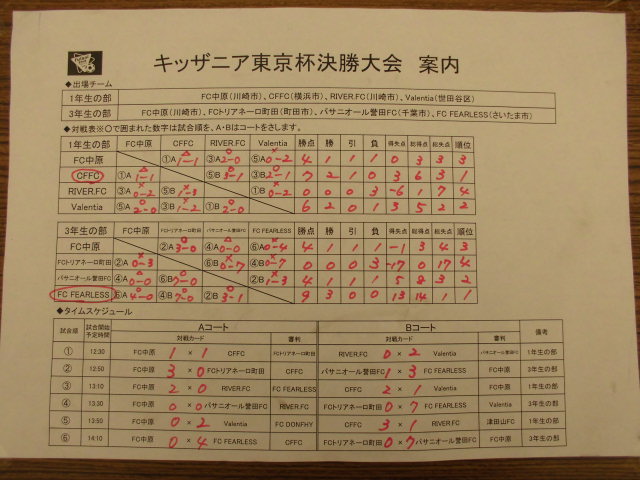 キッザニア東京杯決勝大会 案内
◆出場チーム
1年生の部 FC中原(川崎市)、CFFC(横浜市)、RIVER.FC(川崎市)、Valentia(世田谷区)
3年生の部 FC中原(川崎市)、FCトリアネーロ町田(町田市)、パサニオール誉田FC(千葉市)、FC FEARLESS(さいたま市)
◆対戦表※○で囲まれた数字は試合順を、A・Bはコートをさします。
1年生の部 FC中原 CFFC RIVER.FC Valentia 勝点 勝 引 負 得失点 総得点 総失点 順位
FC中原 ①A △ 1-1 ③A ○ 2-0 ⑤A × 0-2 4 1 1 1 0 3 3 3
CFFC ①A △ 1-1 ⑤B ○ 3-1 ③B ○ 2-1 7 2 1 0 3 6 3 1
RIVER.FC ③A × 0-2 ⑤B × 1-3 ①B × 0-2 0 0 0 3 -6 1 7 4
Valentia ⑤A ○ 2-0 ③B × 1-2 ①B ○ 2-0 6 2 0 1 3 5 2 2
3年生の部 FC中原 FCトリアネーロ町田 パサニオール誉田FC FC FEARLESS 勝点 勝 引 負 得失点 総得点 総失点 順位
FC中原 ②A ○ 3-0 ④A △ 0-0 ⑥A × 0-4 4 1 1 1 -1 3 4 3
FCトリアネーロ町田 ②A × 0-3 ⑥B × 0-7 ④B × 0-7 0 0 0 3 -17 0 17 4
パサニオール誉田FC ④A △ 0-0 ⑥B ○ 7-0 ②B × 1-3 4 1 1 1 5 8 3 2
FC FEARLESS ⑥A ○ 4-0 ④B ○ 7-0 ②B ○ 3-1 9 3 0 0 13 14 1 1
◆タイムスケジュール
試合順 試合開始予定時間 Aコート Bコート 備考
対戦カード 審判 対戦カード 審判
① 12:30 FC中原 1 × 1 CFFC FCトリアネーロ町田 RIVER.FC 0 × 2 Valentia パサニオール誉田FC 1年生の部
② 12:50 FC中原 3 × 0 FCトリアネーロ町田 CFFC パサニオール誉田FC 1 × 3 FC FEARLESS FC中原 3年生の部
③ 13:10 FC中原 2 × 0 RIVER.FC FC FEARLESS CFFC 2 × 1 Valentia FC中原 1年生の部
④ 13:30 FC中原 0 × 0 パサニオール誉田FC RIVER.FC FCトリアネーロ町田 0 × 7 FC FEARLESS Valentia 3年生の部
⑤ 13:50 FC中原 0 × 2 Valentia FC DONFHY CFFC 3 × 1 RIVER.FC 津田山FC 1年生の部
⑥ 14:10 FC中原 0 × 4 FC FEARLESS CFFC FCトリアネーロ町田 0 × 7 パサニオール誉田FC FC中原 3年生の部